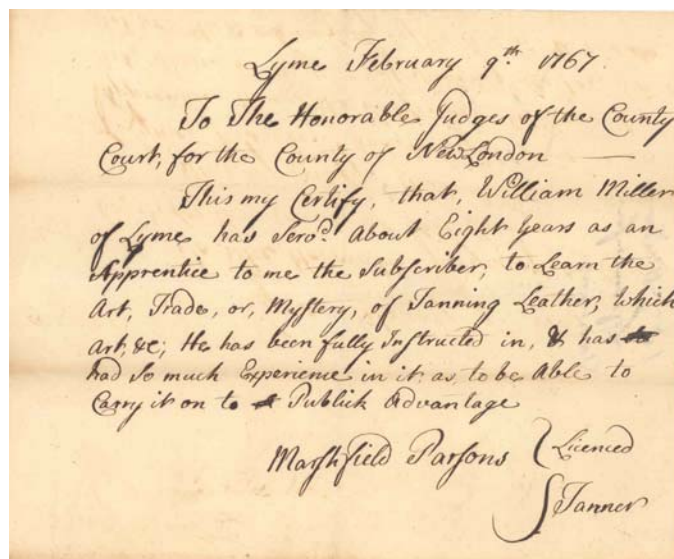 Lyme February 9th. 1767.
To The Honorable Judges of the County
Court, for the County of New London —
This my Certify, that, William Miller
of Lyme has Servd. About Eight Years as an
Apprentice to me the Subscriber, to Learn the
Art, Trade, or, Mystery, of Tanning Leather, which
Art, &c; He has been fully Instructed in, & has
had So much Experience in it as to be Able to
Carry it on to Publick Advantage
Marshfield Parsons } Licenced
} Tanner